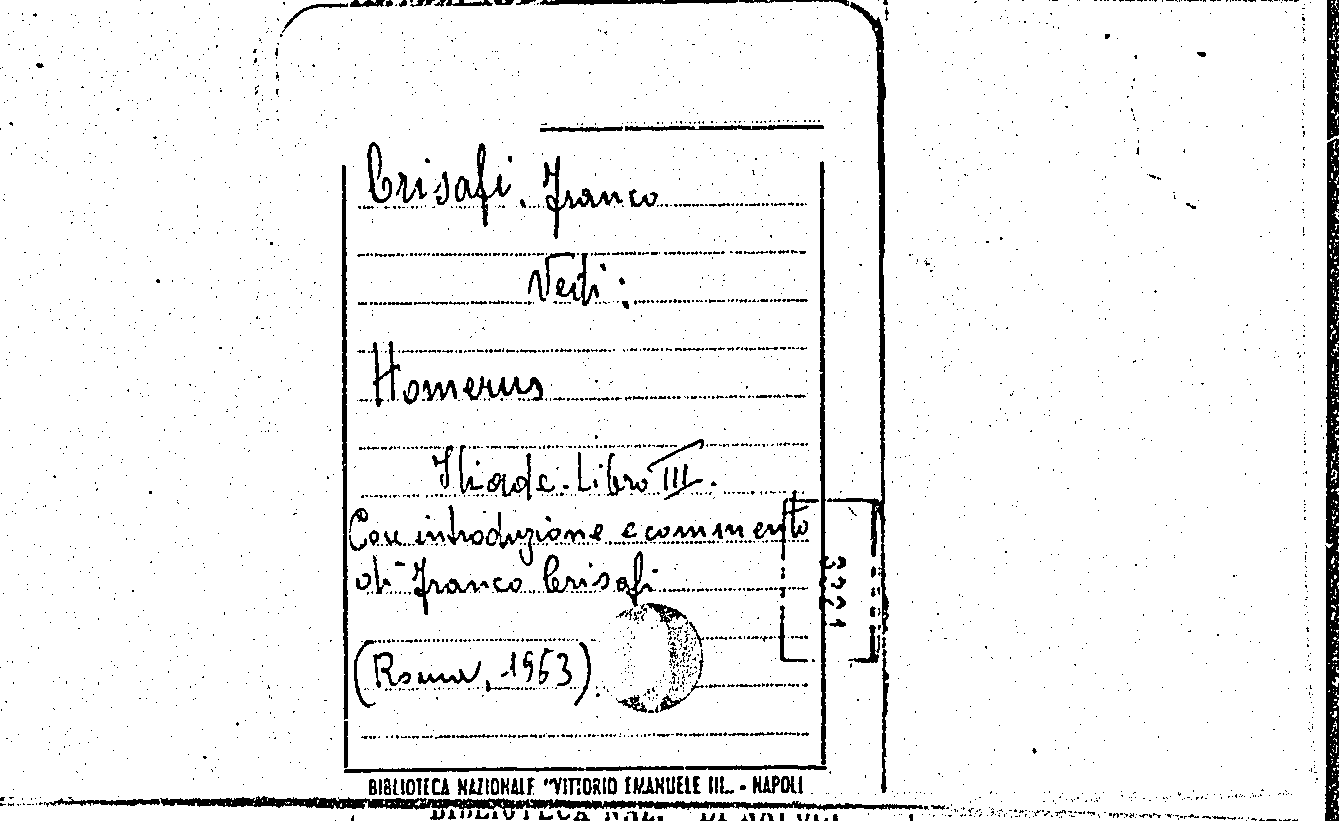 Crisafi, Franco
Vedi:
Homerus
Iliade. Libro III.
Con introduzione e commento
di Franco Crisafi
(Roma, 1953).
BIBLIOTECA NAZIONALE "VITTORIO EMANUELE III„ - NAPOLI